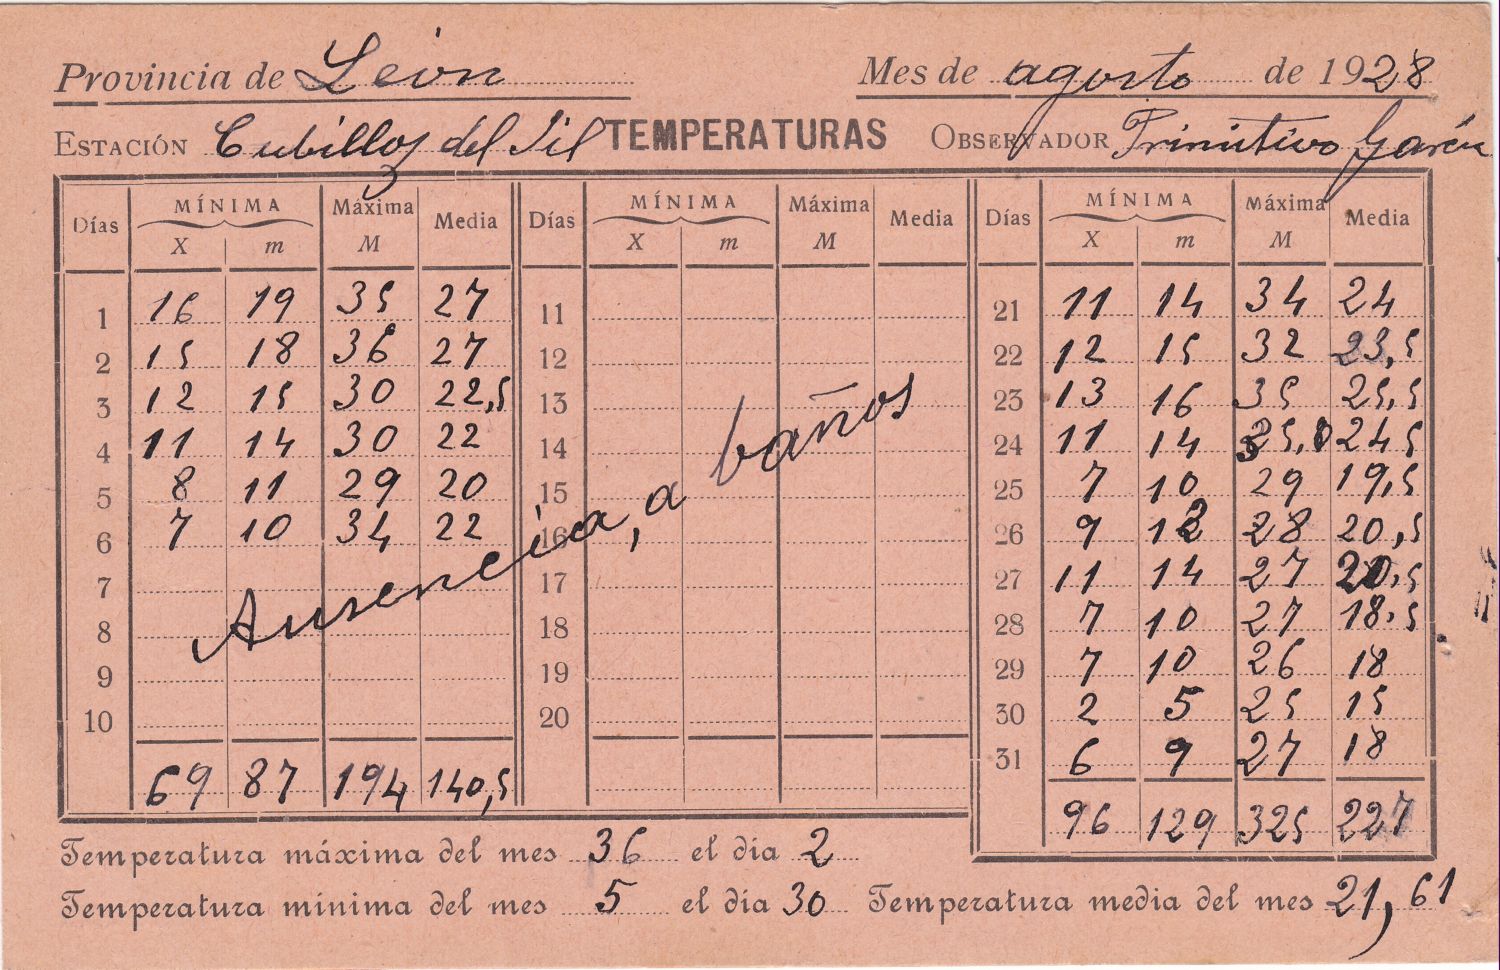 Provincia de León Mes de agosto de 1928
Estación Cubillos del Sil TEMPERATURAS Observador Primitivo García
Días MÍNIMA Máxima Media Días MÍNIMA Máxima Media Días MÍNIMA Máxima Media
X m M X m M X m M
1 16 19 35 27 11 21 11 14 34 24
2 15 18 36 27 12 22 12 15 32 23,5
3 12 15 30 22,5 13 23 13 16 35 25,5
4 11 14 30 22 14 24 11 14 35,0 24 5
5 8 11 29 20 15 25 7 10 29 19,5
6 7 10 34 22 16 26 9 12 28 20,5
7 17 27 11 14 27 20,5
8 18 28 7 10 27 18,5
9 19 29 7 10 26 18
10 20 30 2 5 25 15
31 6 9 27 18
Ausencia, a baños
69 87 194 140,5 96 129 325 227
Temperatura máxima del mes 36 el día 2
Temperatura mínima del mes 5 el día 30 Temperatura media del mes 21,61